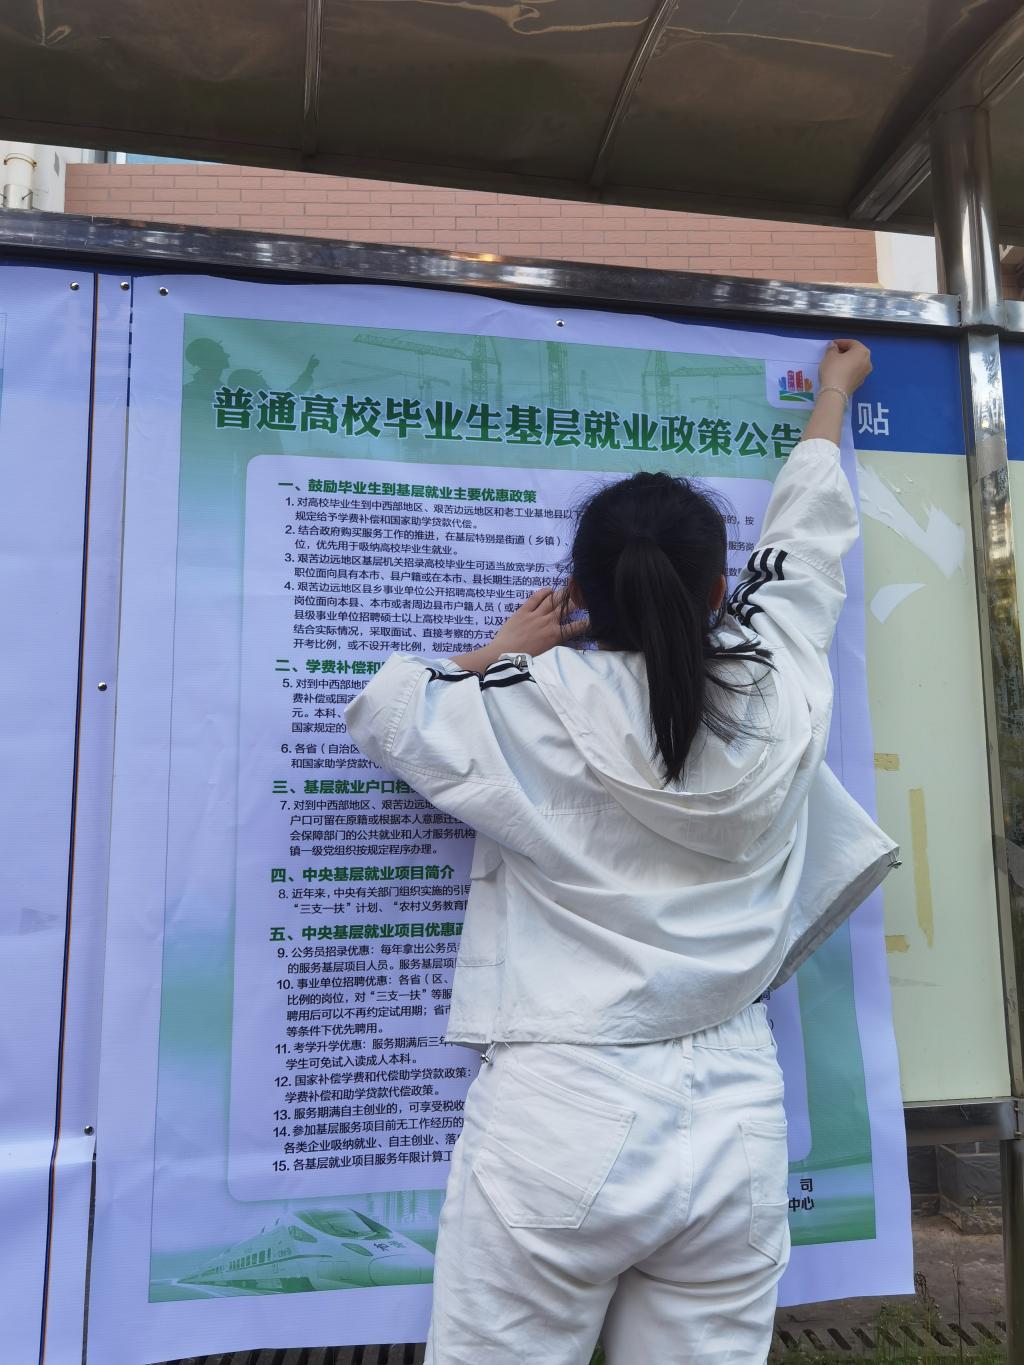 普通高校毕业生基层就业政策公告
贴
一、鼓励毕业生到基层就业主要优惠政策
1. 对高校毕业生到中西部地区、艰苦边远地区和老工业基地县以下
的，按
规定给予学费补偿和国家助学贷款代偿。
2. 结合政府购买服务工作的推进，在基层特别是街道（乡镇）、
服务岗
位，优先用于吸纳高校毕业生就业。
3. 艰苦边远地区基层机关招录高校毕业生可适当放宽学历、专业
职位面向具有本市、县户籍或在本市、县长期生活的高校毕业
4. 艰苦边远地区县乡事业单位公开招聘高校毕业生可适
岗位面向本县、本市或者周边县市户籍人员（或者
县级事业单位招聘硕士以上高校毕业生，以及
结合实际情况，采取面试、直接考察的方式
开考比例，或不设开考比例，划定成绩合
二、学费补偿和
5. 对到中西部地区
费补偿或国家
元。本科、
国家规定的
6. 各省（自治区
和国家助学贷款代
三、基层就业户口档
7. 对到中西部地区、艰苦边远地
户口可留在原籍或根据本人意愿迁往
会保障部门的公共就业和人才服务机构
镇一级党组织按规定程序办理。
四、中央基层就业项目简介
8. 近年来，中央有关部门组织实施的引导
“三支一扶”计划、“农村义务教育阶
五、中央基层就业项目优惠政
9. 公务员招录优惠：每年拿出公务员考
的服务基层项目人员。服务基层项
10. 事业单位招聘优惠：各省（区、
比例的岗位，对“三支一扶”等服
聘用后可以不再约定试用期；省市
等条件下优先聘用。
11. 考学升学优惠：服务期满后三年
学生可免试入读成人本科。
12. 国家补偿学费和代偿助学贷款政策：
学费补偿和助学贷款代偿政策。
13. 服务期满自主创业的，可享受税收
14. 参加基层服务项目前无工作经历的
各类企业吸纳就业、自主创业、落
15. 各基层就业项目服务年限计算工
司
中心
和谐